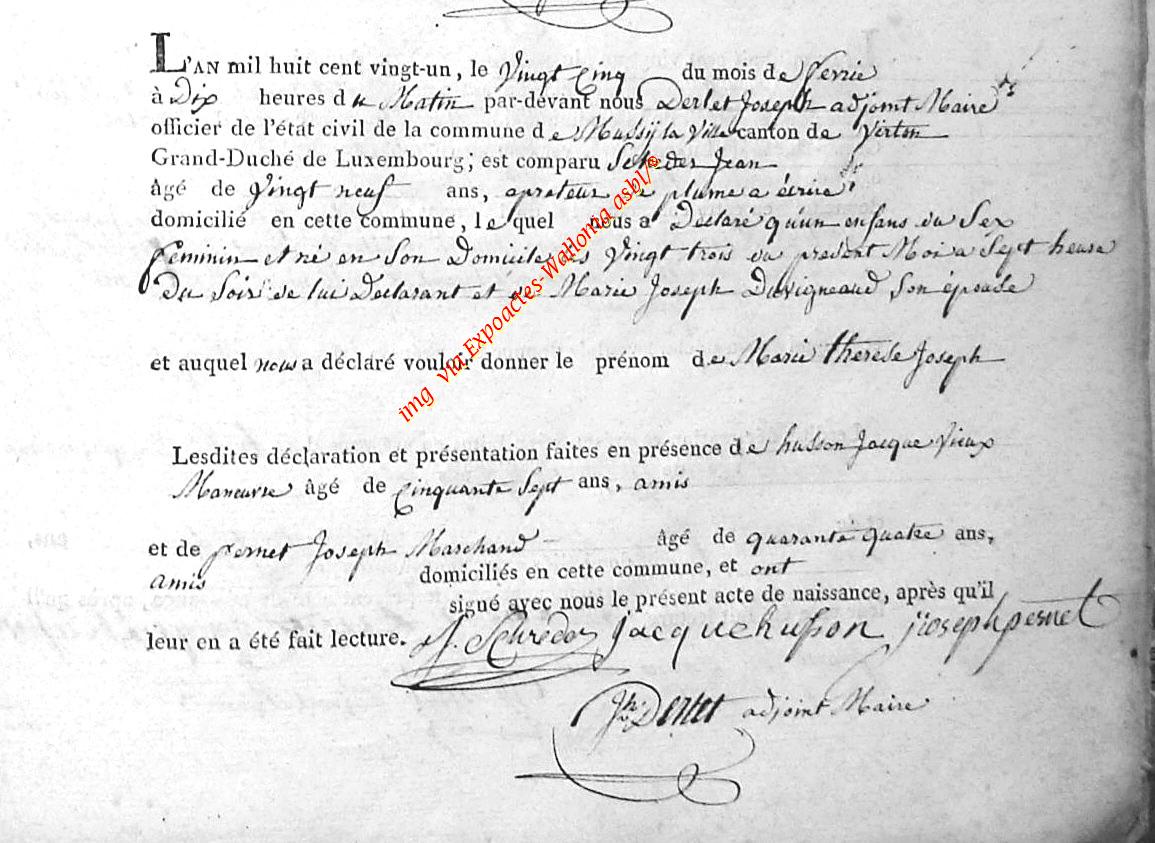 L'AN mil huit cent vingt-un, le Vingt Cinq du mois de fevrie
à Dix heures du Matin par-devant nous Derlet Joseph adjoint Maire
officier de l'état civil de la commune de Mussÿ la Ville canton de Virton
Grand-Duché de Luxembourg; est comparu Schreder Jean
âgé de Vingt neuf ans, aprateur de plume a écrire
domicilié en cette commune, lequel nous a Déclaré qu'un enfans du Sex
feminin et né en Son Domicile les Vingt trois du present Moi a Sept heure
Du Soir de lui Declarant et de Marie Joseph Duvigneaud Son épouse
et auquel nous a déclaré vouloir donner le prénom de Marie therese Joseph
Lesdites déclaration et présentation faites en présence de husson Jacque Vieux
Maneuvre âgé de Cinquante Sept ans, amis
et de pernet Joseph Marchand âgé de quarante quatre ans,
amis domiciliés en cette commune, et ont
signé avec nous le présent acte de naissance, après qu'il
leur en a été fait lecture. J. Schreder jacque husson jioseph pernet
Jh. Derlet adjoint Maire
img via Expoactes-Wallonia asbl/®